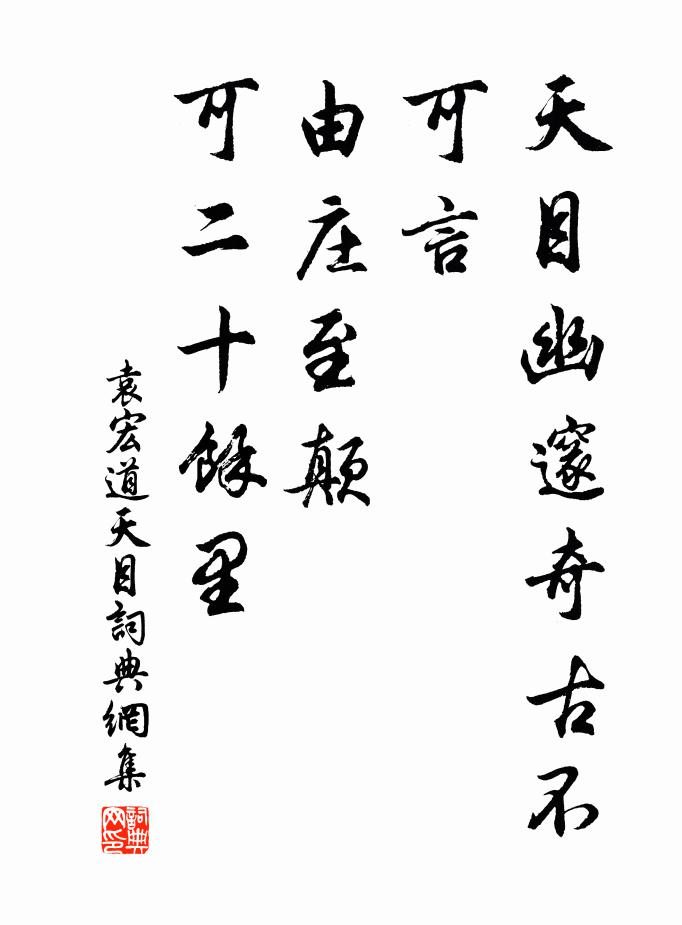 天目幽邃奇古不
可言
由庄至颠
可二十餘里
袁宏道天目詞典網集
詞典
网印